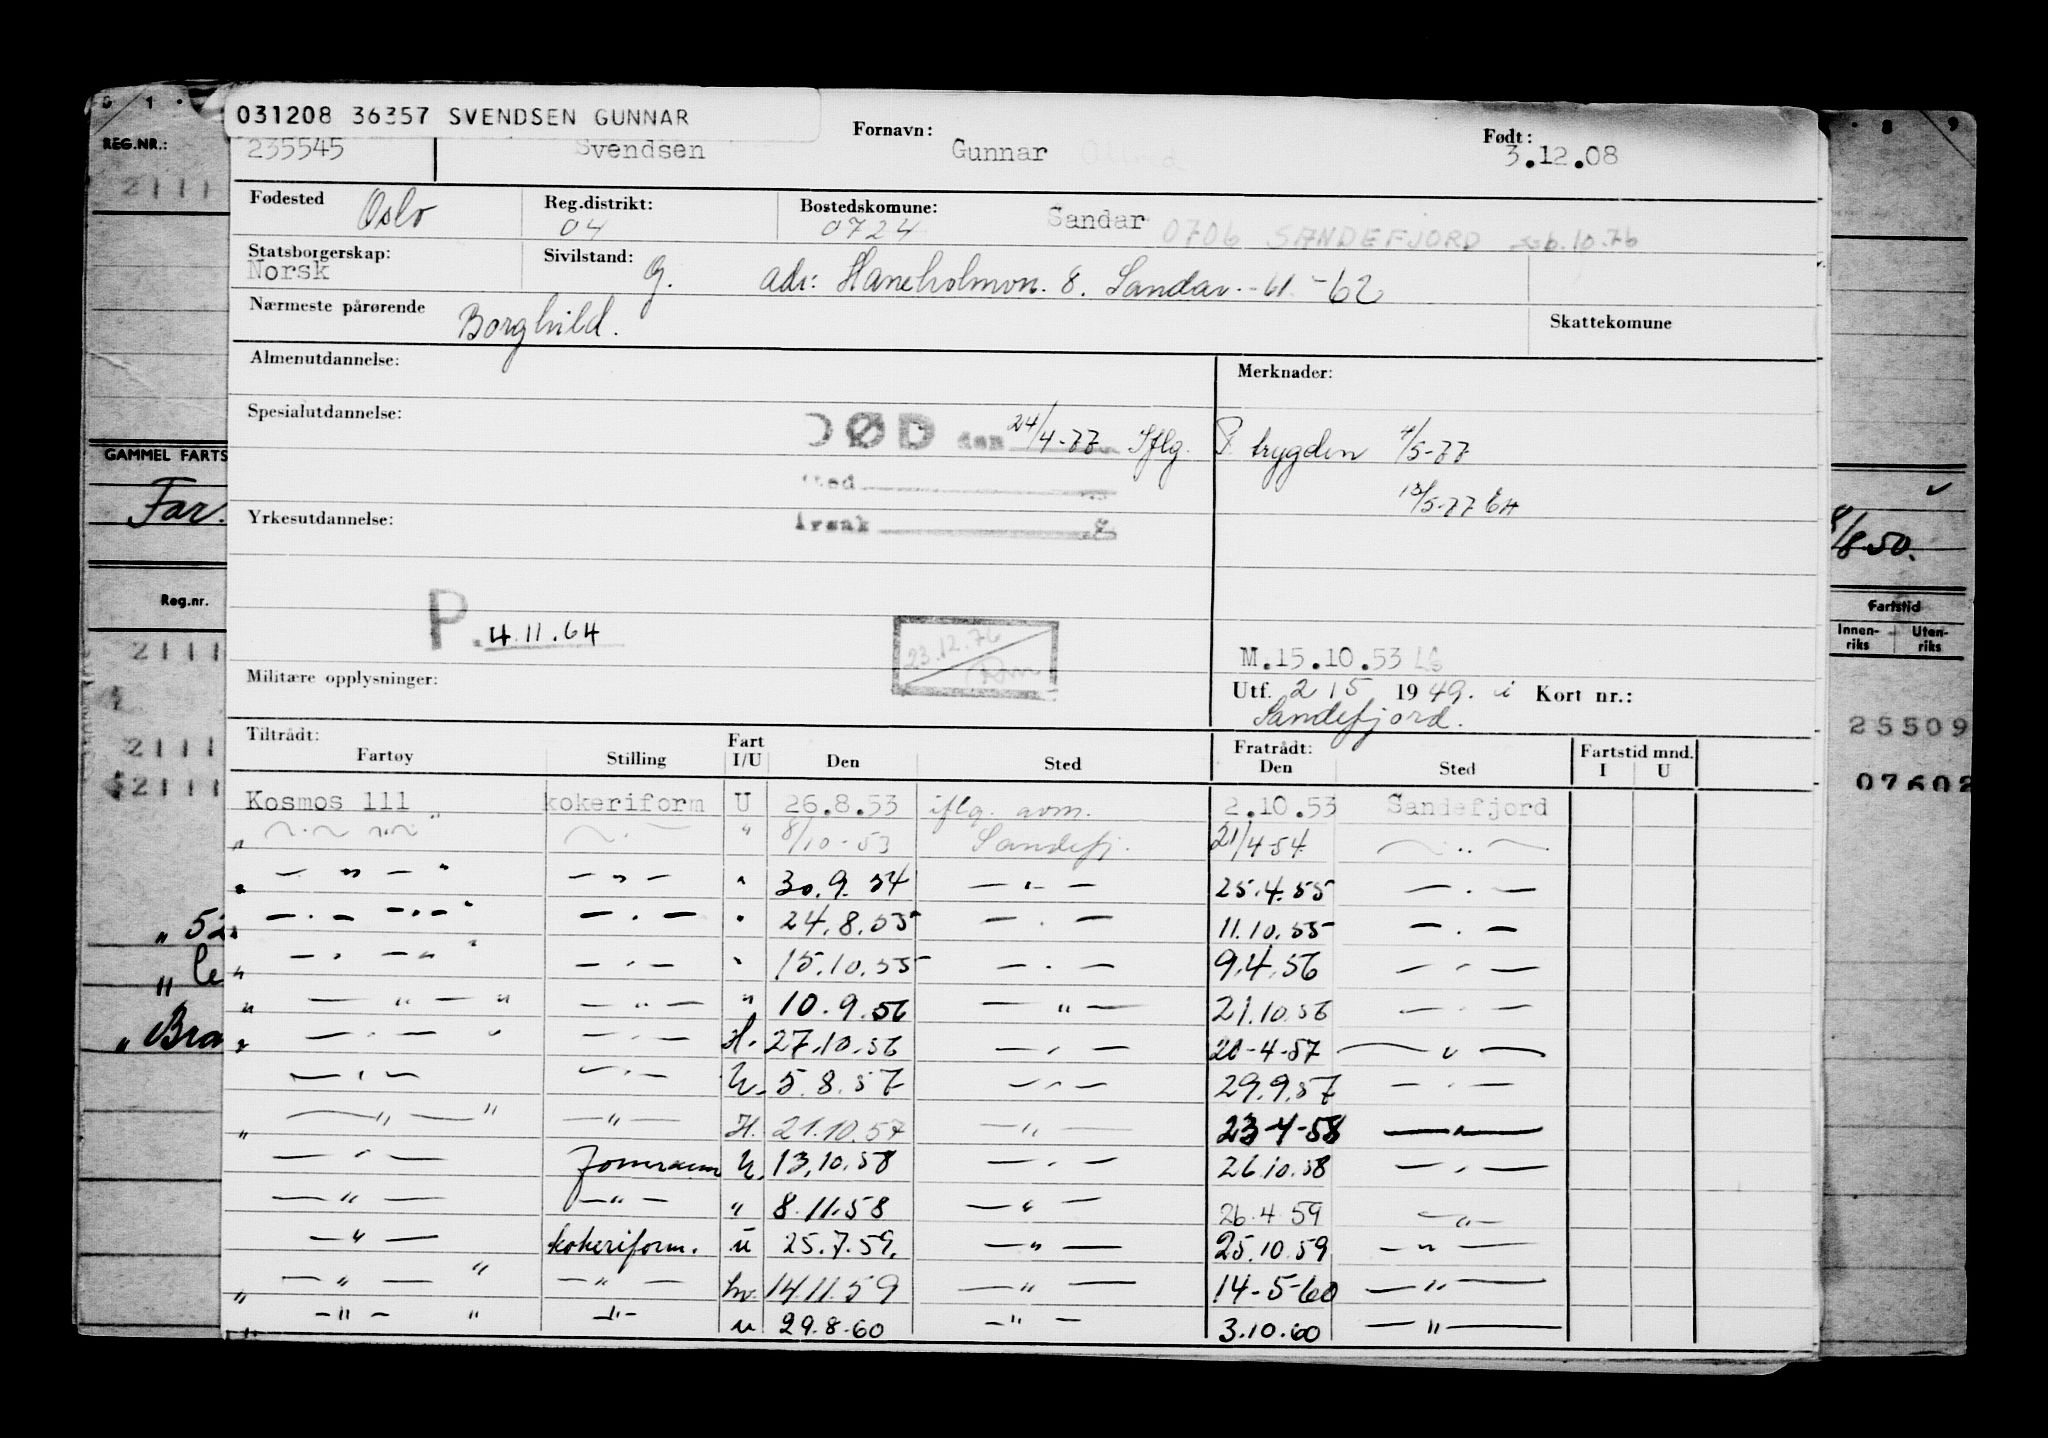 031208 36357 SVENDSEN GUNNAR
Fornavn: Født:
235545 Svendsen Gunnar 3.12.08
REG.NR.:
2111
Fødested Oslo Reg.distrikt: 04 Bostedskomune: 0724 Sandar 0706 SANDEFJORD 6.10.76
Statsborgerskap: Norsk Sivilstand: g. adr: Haneholmvn. 8. Sandar - 61 -62
Nærmeste pårørende Borghild. Skattekomune
Almenutdannelse: Merknader:
Spesialutdannelse: DØD den 24/4-77 Iflg. P trygden 4/5-77
GAMMEL FARTS
Far.
sted
13/5-77 EH
Yrkesutdannelse: årsak
8/8 50.
Reg.nr. Fartstid
Innenriks Utenriks
P. 4.11.64
23.12.76
2111
M.15.10.53
Militære opplysninger: Utf. 2 / 5 1949. i Kort nr.:
Sandefjord.
25509
2111
07602
2111
Tiltrådt: Fartøy Stilling Fart I/U Den Sted Fratrådt: Den Sted Fartstid mnd. I U
Kosmos 111 kokeriform U 26.8.53 iflg. avm. 2.10.53 Sandefjord
" — " — — " — " 8/10-53 Sandefj. 21/4-54 — " —
" — " — " — " — " 30.9.54 — " — 25.4.55 — " —
— " — — " — " — " — " 24.8.55 — " — 11.10.55 — " —
" — " — " — " — " 15.10.55 — " — 9.4.56 — " —
" — " — " — " — " 10.9.56 — " — 21.10.56 — " —
" — " — " — " — H. 27.10.56 — " — 20-4-57 — " —
— " — — " — U. 5.8.57 — " — 29.9.57 — " —
" — " — " — " — H. 21.10.57 — " — 23-4-58 — " —
— " — U. 13.10.58 — " — 26.10.58 — " —
— " — — " — " 8.11.58 — " — 26.4.59 — " —
— " — kokeriform. u 25.7.59. — " — 25.10.59 — " —
" — " — " — " — hv. 14.11.59 — " — 14-5-60 — " —
" — " — " — " — u 29.8.60 — " — 3.10.60 — " —
" 52
"
" Bra